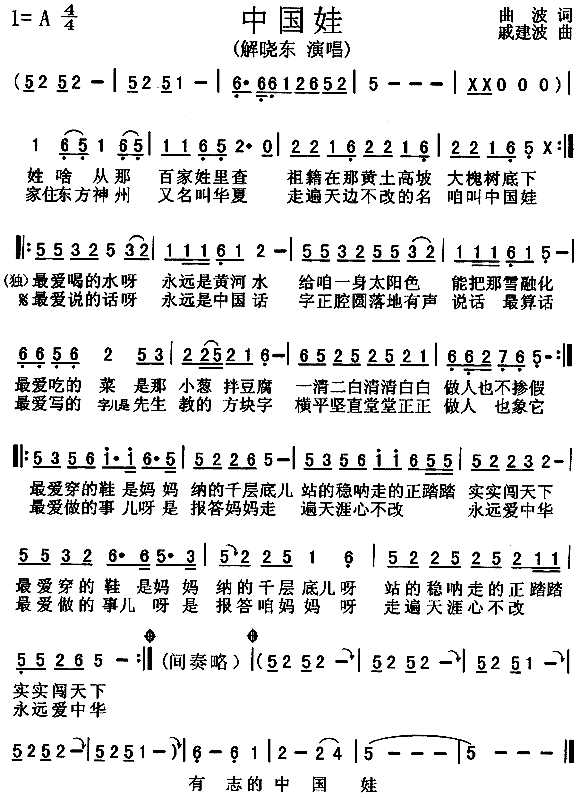 1= A 4/4 中国娃 曲 波 词
戚建波 曲
(解晓东 演唱)
( 5 2 5 2 - | 5 2 5 1 - | 6· 6 6 1 2 6 5 2 | 5 - - - | X X 0 0 0 ) |
1 6 5 1 6 5 | 1 1 6 5 2· 0 | 2 2 1 6 2 2 1 6 | 2 2 1 6 5 X :||
姓 啥 从 那 百家姓里查 祖籍在那黄土高坡 大槐树底下
家住东方神州 又名叫华夏 走遍天边不改的名 咱叫中国娃
||: 5 5 3 2 5 3 2 | 1 1 1 6 1 2 - | 5 5 3 2 5 5 3 2 | 1 1 1 6 1 5 5 |
(独) 最爱喝的水呀 永远是黄河水 给咱一身太阳色 能把那雪融化
最爱说的话呀 永远是中国话 字正腔圆落地有声 说话 最算话
6 6 5 6 2 5 3 | 2 2 5 2 1 6 - | 6 5 2 5 2 5 2 2 | 6 6 2 7 6 5 - :||
最爱吃的 菜 是那 小葱 拌豆腐 一清二白清清白白 做人也不掺假
最爱写的 字儿是先生 教的 方块字 横平坚直堂堂正正 做人 也象它
||: 5 3 5 6 i· i 6· 5 | 5 2 2 6 5 - | 5 3 5 6 i i 6 5 5 | 5 2 2 3 2 - |
最爱穿的鞋 是妈妈 纳的千层底儿 站的稳呐走的正踏踏 实实闯天下
最爱做的事 儿呀是 报答妈妈走 遍天涯心不改 永远爱中华
5 5 3 2 6· 5 5· 3 | 5 2 2 5 1 6 | 5 2 5 2 5 5 2 1 1 |
最爱穿的 鞋 是妈妈 纳的千层底儿呀 站的稳呐走的正踏踏
最爱做的事儿 呀是 报答咱妈妈 呀 走遍天涯心不改
5 5 2 6 5 - :|| (间奏略) | ( 5 2 5 2 - | 5 2 5 1 - | 5 2 5 1 - |
实实闯天下
永远爱中华
5 2 5 2 - | 5 2 5 1 - ) | 6 - 6 1 | 2 - 2 4 | 5 - - - | 5 - - - ||
有 志的 中 国 娃